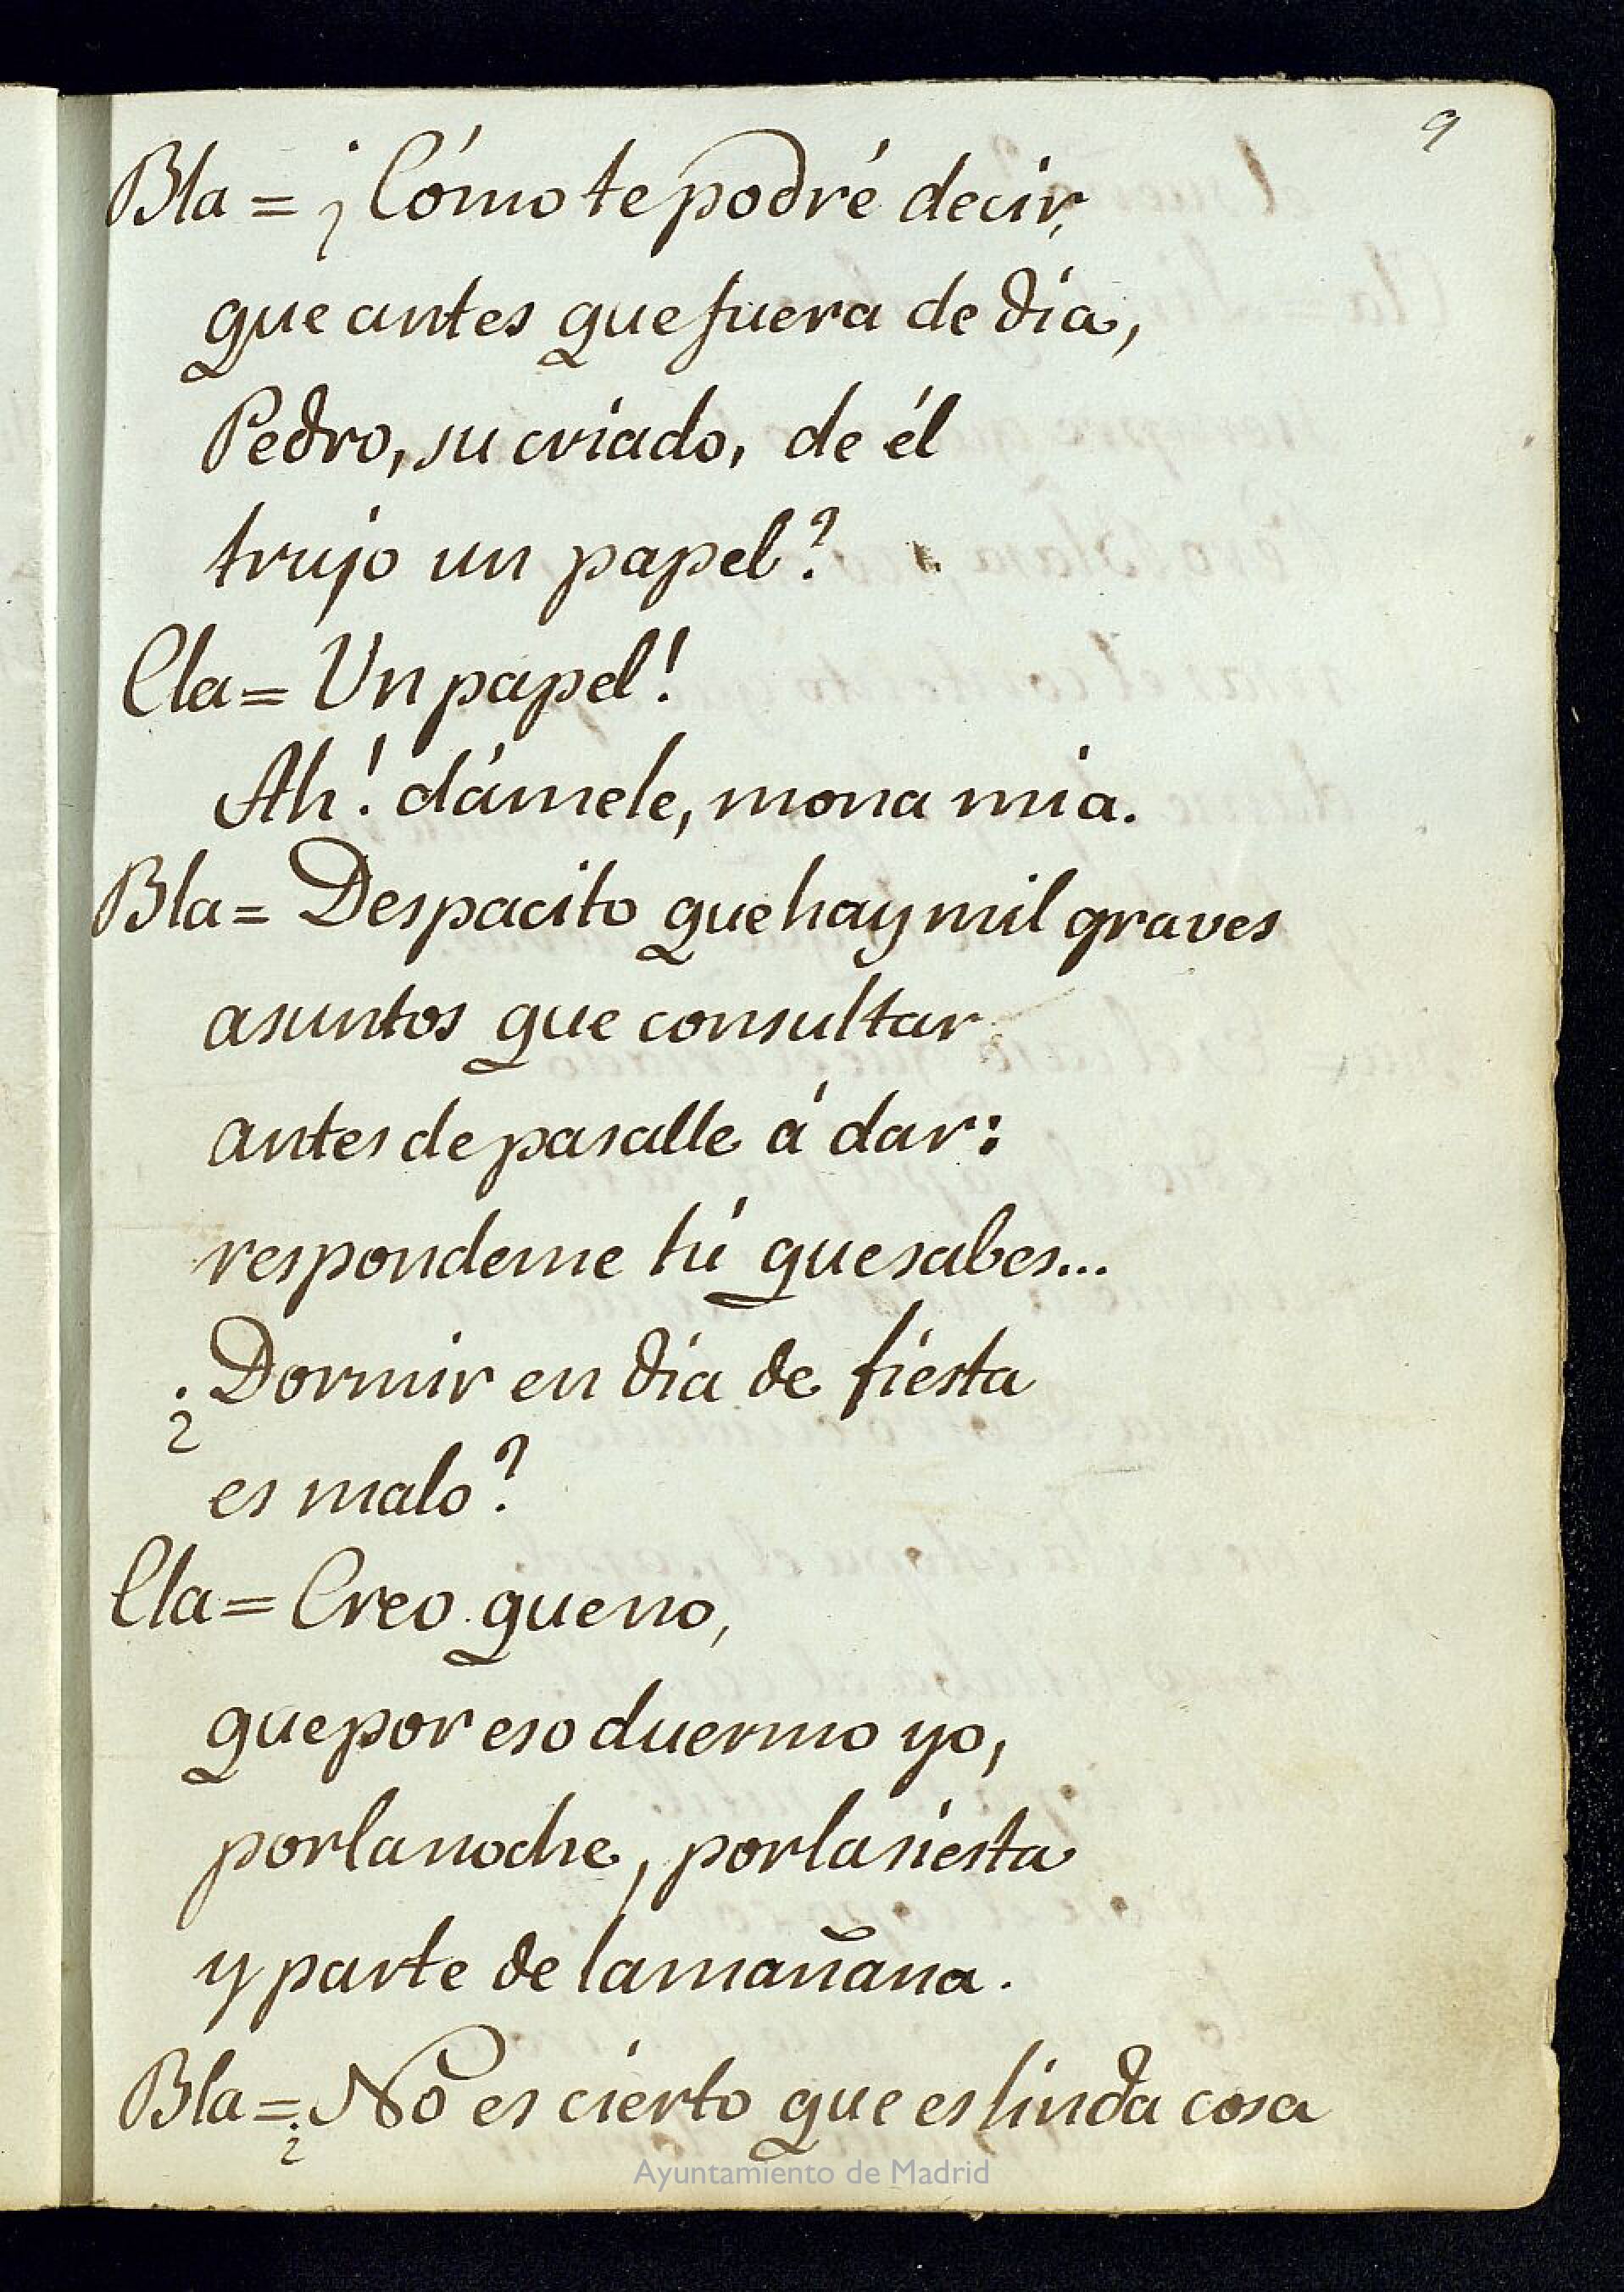 9
Bla = ¡Cómo te podré decir,
que antes que fuera de dia,
Pedro, su criado, de él
trujo un papel?
Cla = Un papel!
Ah! dámele, mona mia.
Bla = Despacito que hay mil graves
asuntos que consultar
antes de pasalle á dar:
respondeme tú que sabes...
¿Dormir en dia de fiesta
es malo?
Cla = Creo que no,
que por eso duermo yo,
por la noche, por la siesta
y parte de la mañana.
Bla = ¿No es cierto que es linda cosa
Ayuntamiento de Madrid